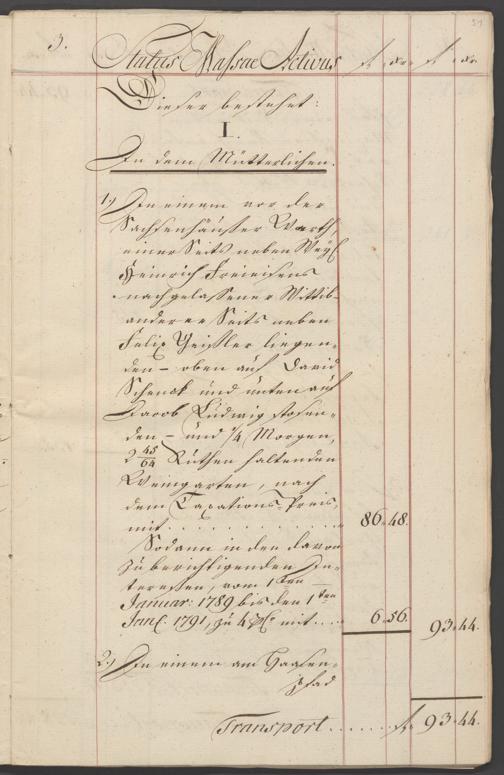 3. Status Massae Activus f. xr. f. xr.
51
Dieser bestehet:
I.
In dem Mütterlichen.
1.) In einem vor der
Sachsenhäuser Warth,
einer Seits neben Weyl.
Heinrich Freieisens
nachgelassener Wittib-
anderer Seits neben
Felix Geißler liegen-
den - oben auf David
Schenck und unten auf
Jacob Ludwig stosen-
den - und 1/4 Morgen,
2 45/64 Ruthen haltenden
Weingarten, nach
dem Taxations-Preis,
mit . . . . . . . . . . . 86. 48.
Sodann in den davon
zu berichtigenden In-
teressen, vom 1ten
Januar: 1789 bis den 1ten
Jan: 1791, zu 4 pC mit .... 6. 56. 93. 44.
2.) In einem am Haasen-
pfad
Transport . . . . . . . f. 93. 44.